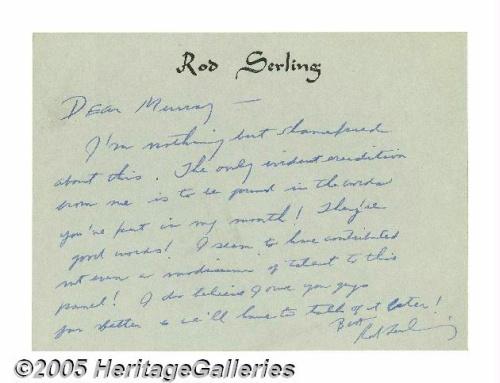 Rod Serling
Dear Murray —
I'm nothing but shamefaced
about this. The only evident erudition
from me is to be found in the words
you've put in my mouth! They're
good words! I seem to have contributed
not even a modicum of talent to this
panel! I do believe I owe you guys
far better & we'll have to talk of it later!
Best
Rod Serling
©2005 HeritageGalleries